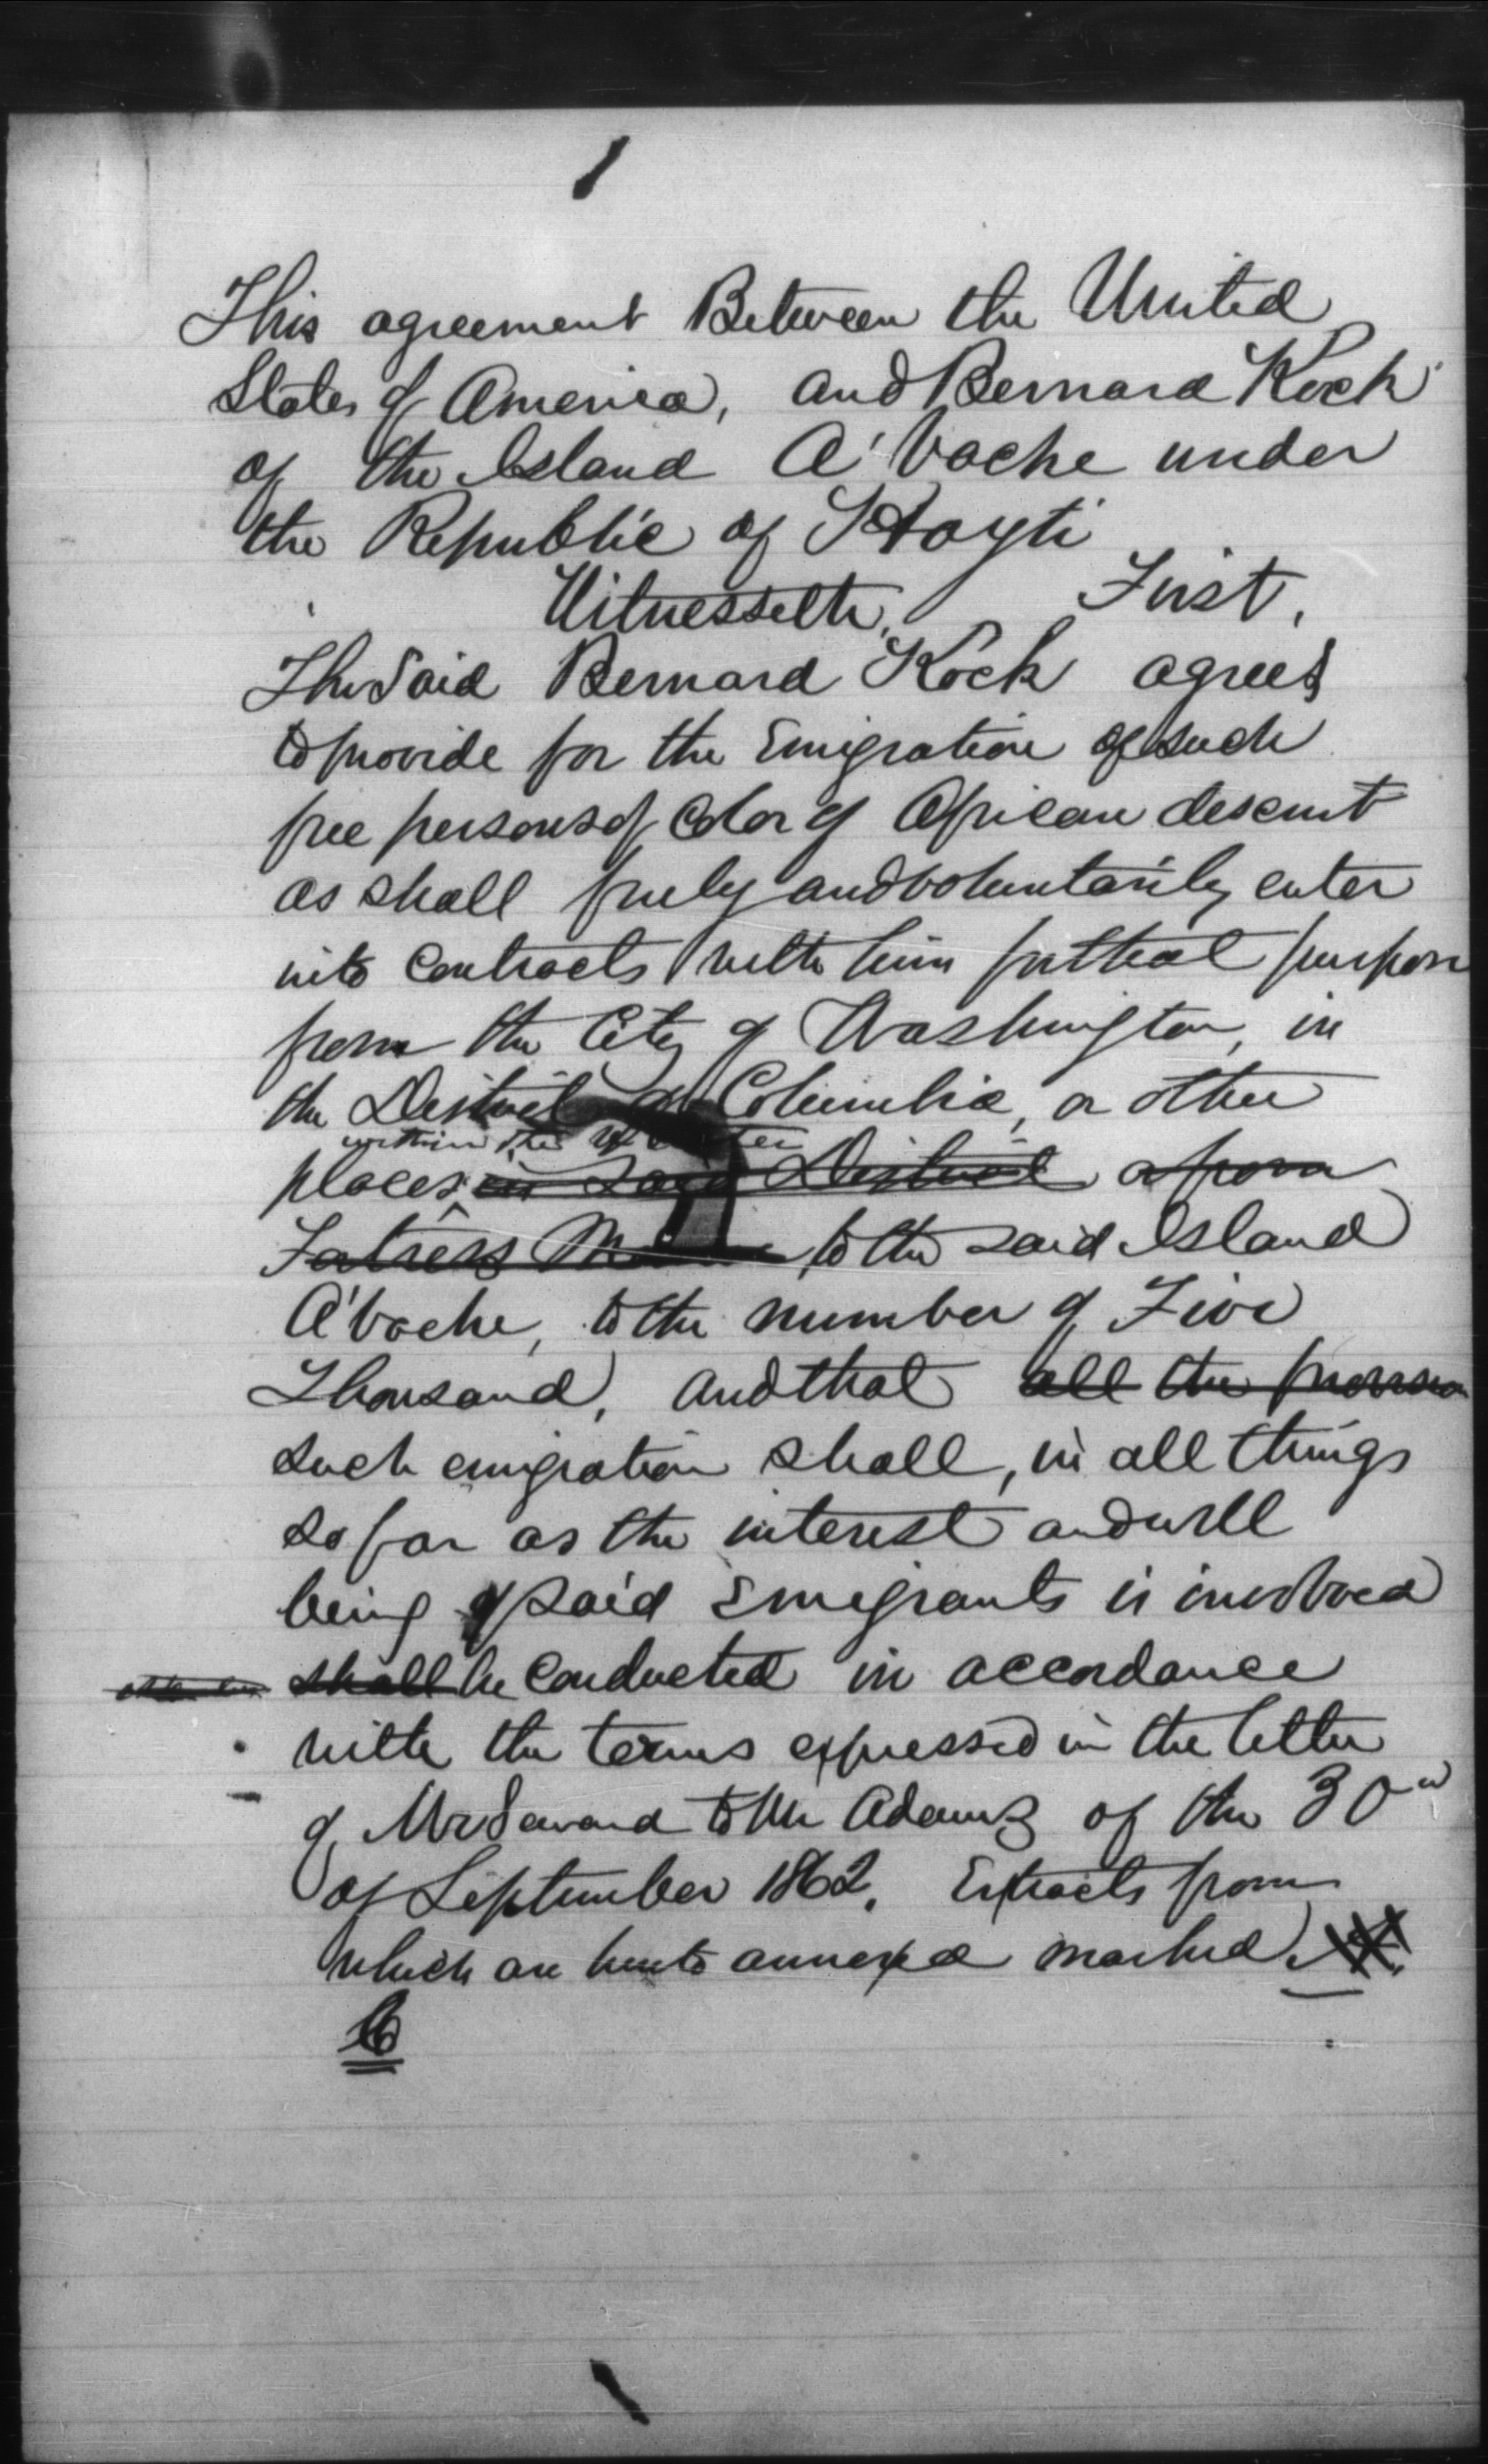 1
This agreement Between the United
States of America, and Bernard Kock
of the Island A'Vache under
the Republic of Hayti
Witnesseth, First,
The Said Bernard Kock agrees
to provide for the Emigration of such
free persons of Color of African descent
as shall freely and voluntarily enter
into Contracts with him for that purpose
from the City of Washington, in
the District of Columbia, or other
within the
places in Said District or from
Fortress Monroe to the said Island
A'Vache, to the number of Five
Thousand, and that all the provision
such emigration shall, in all things
so far as the interest and well
being of said Emigrants is involved
shall be Conducted in accordance
with the terms expressed in the letter
of Mr Seward to Mr Adams of the 30
of September 1862, Extracts from
which are hereto annexed marked